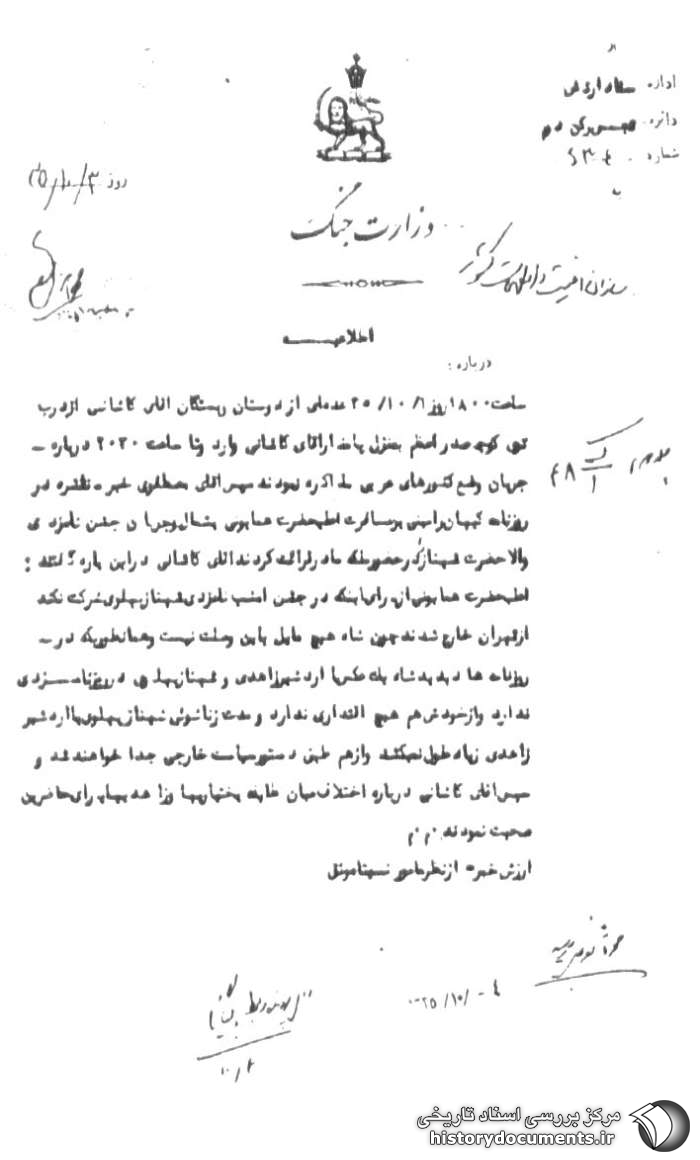 اداره ستاد ارتش
دائره تجسس رکن دوم
شماره
روز
وزارت جنگ
سازمان امنیت و اطلاعات کشور
اطلاعیه
درباره:
ساعت ۱۸۰۰ روز ۱/ ۱۰/ ۳۵ عده‌ای از دوستان و بستگان آقای کاشانی از درب
توی کوچه صدراعظم بمنزل پامنار آقای کاشانی وارد و تا ساعت ۲۰۳۰ درباره —
جهان وضع کشورهای عربی مذاکره نمودند سپس آقای مصطفوی خبر منتشره در
روزنامه کیهان را مبنی بر مسافرت اعلیحضرت همایونی بشمال و جریان جشن نامزدی
والاحضرت شهناز که در حضور ملکه مادر قرائت کردند آقای کاشانی در این باره گفتند :
اعلیحضرت همایونی از برای اینکه در جشن امشب نامزدی شهناز پهلوی شرکت نکند
از تهران خارج شدند چون شاه هیچ مایل باین وصلت نیست و همانطوریکه در —
روزنامه ها دیدید شاه یک عکس با اردشیر زاهدی و شهناز پهلوی در روزنامه
ندارد و از خودش هم هیچ اقتداری ندارد و مدت زناشوئی شهناز پهلوی با اردشیر
زاهدی زیاد طول نمیکشد و از هم طبق دستور سیاست خارجی جدا خواهند شد و
سپس آقای کاشانی درباره اختلاف میان طایفه بختیاریها و زاهدیها برای حاضرین
صحبت نمودند. م م
ارزش خبر = از نظر مامور نسبتا موثق
۴۸ ک/۱
۴ -/۱۰/۳۵
مرکز بررسی اسناد تاریخی
historydocuments.ir